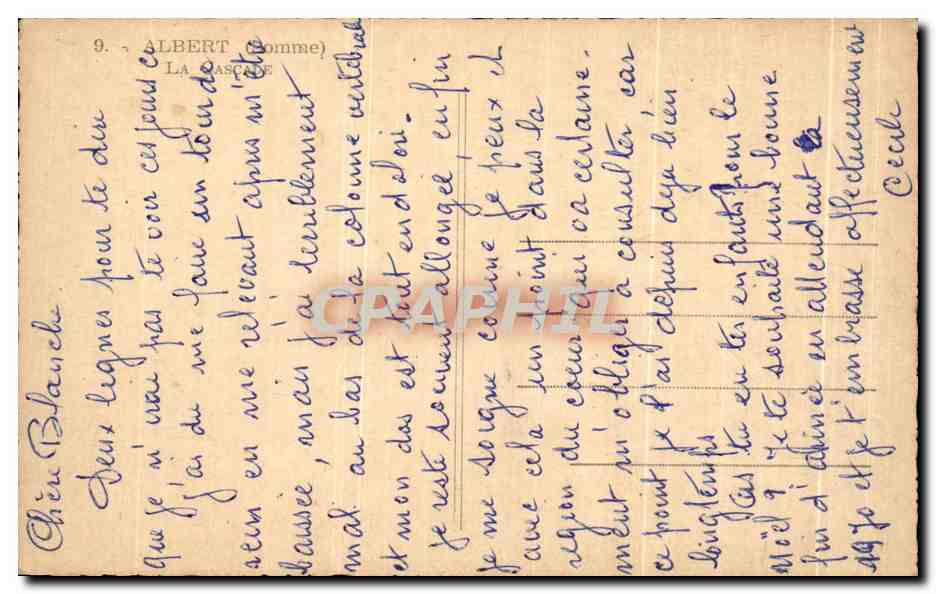 9. - ALBERT (Somme)
LA CASCADE
Chère Blanche
Deux lignes pour te dire
que je n'irai pas te voir ces jours ci
j'ai du me faire un tour de
rein en me relevant après m'être
baissée, mais j'ai terriblement
mal au bas de la colonne vertébrale
et mon dos est tout endolori.
je reste souvent allongée, enfin
je me soigne comme je peux et
avec cela un point dans la
région du coeur qui va certaine-
ment m'obliger à consulter car
ce point je l'ai depuis déjà bien
longtemps
as tu eu tes enfants pour le
Noël ? je te souhaite une bonne
fin d'année en attendant la
1970 et je t'embrasse affectueusement
Cecile
CPAPHIL